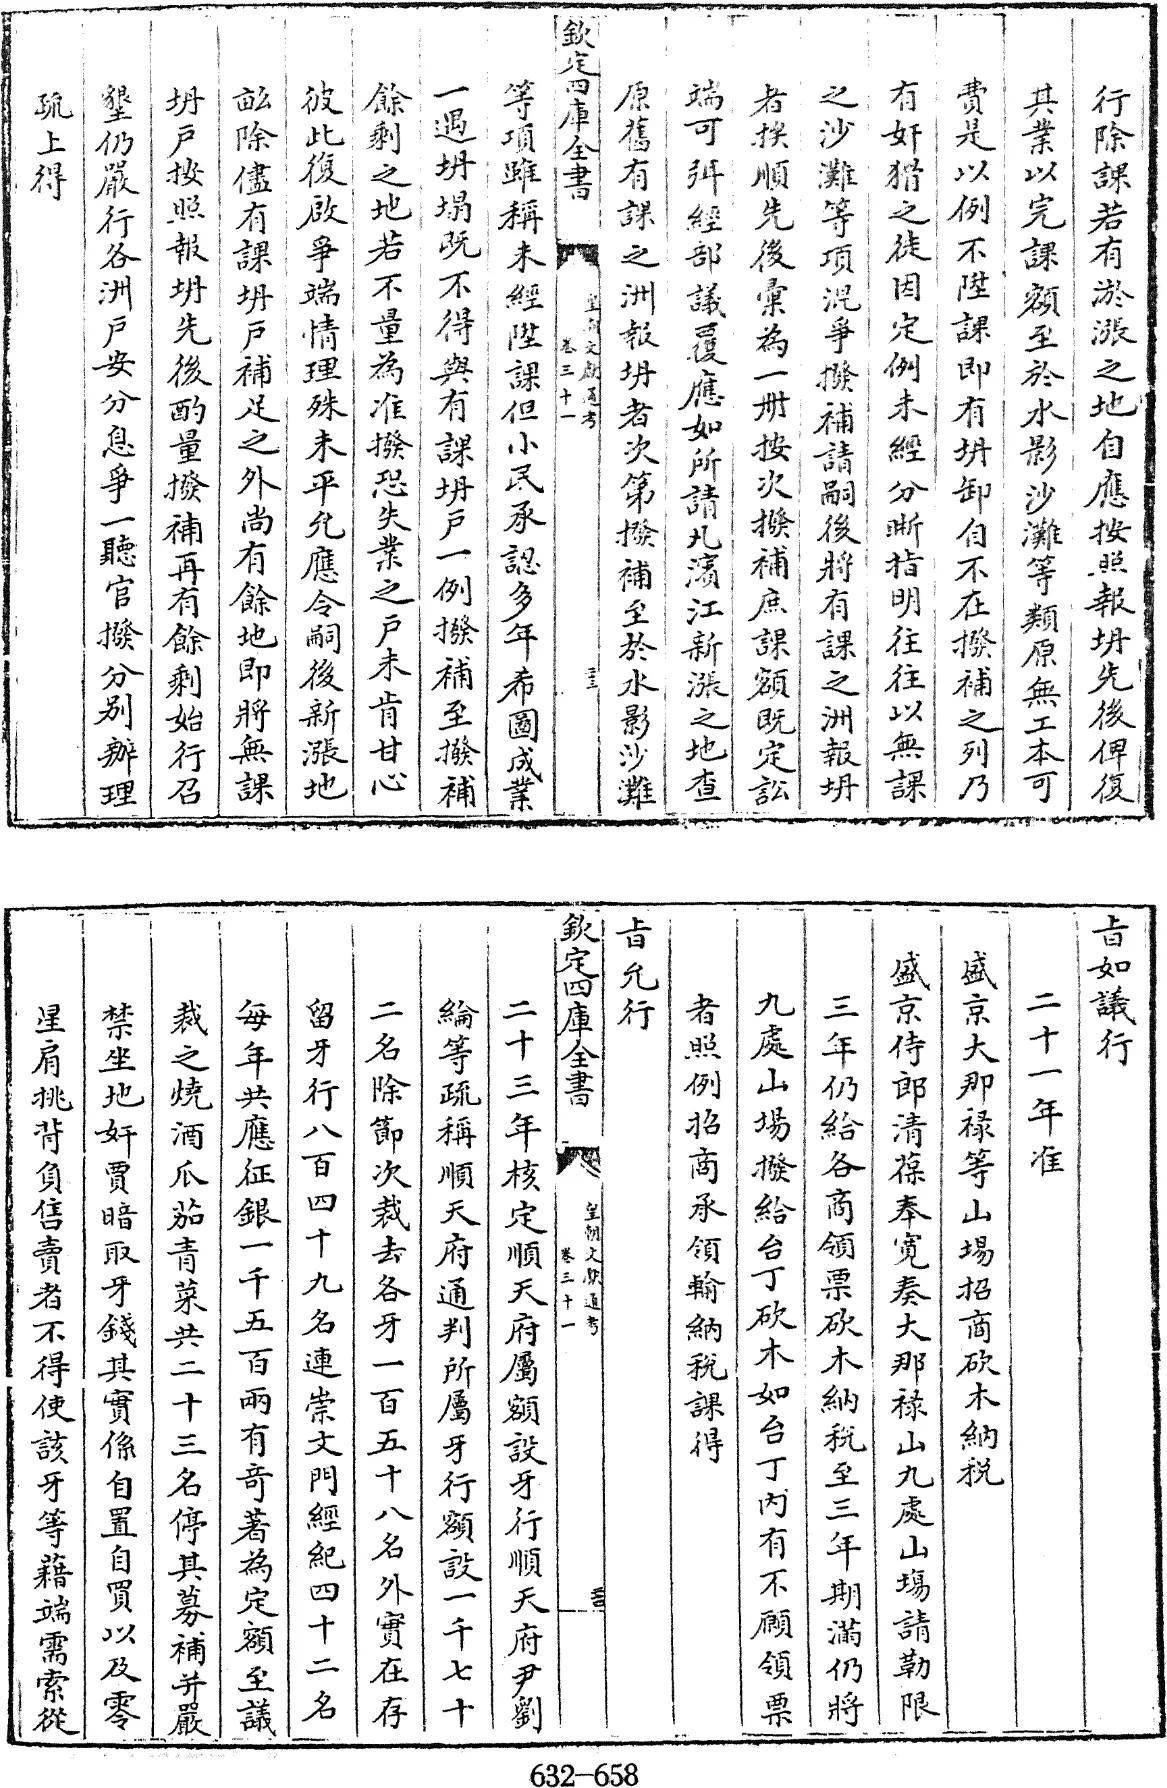 行除課若有淤漲之地自應按照報坍先後俾復
其業以完課額至於水影沙灘等類原無工本可
費是以例不陞課即有坍卸自不在撥補之列乃
有奸猾之徒因定例未經分晰指明往往以無課
之沙灘等項混爭撥補請嗣後將有課之洲報坍
者挨順先後彙為一冊按次撥補庶課額既定訟
端可弭經部議覆應如所請凡濱江新漲之地查
原舊有課之洲報坍者次第撥補至於水影沙灘
欽定四庫全書
皇朝文獻通考
卷三十一
三三
等項雖稱未經陞課但小民承認多年希圖成業
一遇坍塌既不得與有課坍戶一例撥補至撥補
餘剩之地若不量為准撥恐失業之戶未肯甘心
彼此復啟爭端情理殊未平允應令嗣後新漲地
畝除儘有課坍戶補足之外尚有餘地即將無課
坍戶按照報坍先後酌量撥補再有餘剩始行召
墾仍嚴行各洲戶安分息爭一聽官撥分別辦理
疏上得
旨如議行
二十一年准
盛京大那祿等山場招商砍木納稅
盛京侍郎清葆奉寬奏大那祿山九處山場請勒限
三年仍給各商領票砍木納稅至三年期滿仍將
九處山場撥給台丁砍木如台丁內有不願領票
者照例招商承領輸納稅課得
旨允行
欽定四庫全書
皇朝文獻通考
卷三十一
二十三年核定順天府屬額設牙行順天府尹劉
綸等疏稱順天府通判所屬牙行額設一千七十
二名除節次裁去各牙一百五十八名外實在存
留牙行八百四十九名連崇文門經紀四十二名
每年共應征銀一千五百兩有奇著為定額至議
裁之燒酒瓜茄青菜共二十三名停其募補并嚴
禁坐地奸賈暗取牙錢其實係自置自買以及零
星肩挑背負售賣者不得使該牙等藉端需索從
632-658